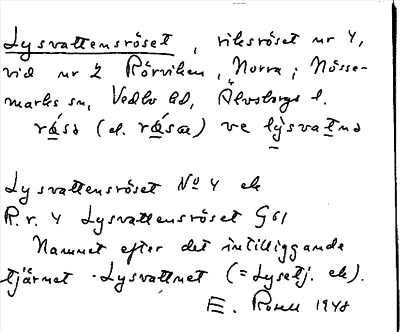 Lysvattensröset, riksröset nr 4,
vid nr 2 Rörviken, Norra, i Nösse-
marks sn, Vedbo hd, Älvsborgs l.
rása (el. räsa) ve lysvatna
Lysvattensröset No 4 ek
R.r. 4 Lysvattensröset G61
Namnet efter det intilliggande
tjärnet Lysvattnet (= Lysetj. ek).
E. Rosell 1948